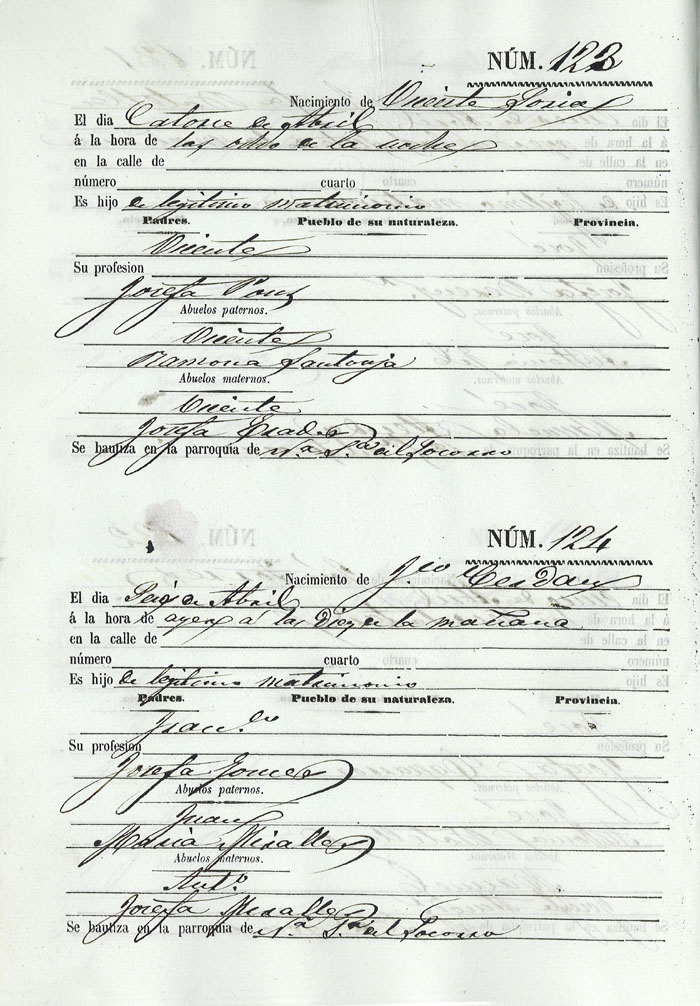 NÚM. 123
Nacimiento de Vicente Soria
El dia Catorce de Abril
á la hora de las ocho de la noche
en la calle de
número cuarto
Es hijo de legitimo matrimonio
Padres. Pueblo de su naturaleza. Provincia.
Vicente
Su profesion
Josefa Pons
Abuelos paternos.
Vicente
Ramona Santonja
Abuelos maternos.
Vicente
Josefa
Se bautiza en la parroquia de Nª Sª del Socorro
NÚM. 124
Nacimiento de Cerdan
El dia Seis de Abril
á la hora de ayer á las Diez de la mañana
en la calle de
número cuarto
Es hijo de legitimo matrimonio
Padres. Pueblo de su naturaleza. Provincia.
Franco
Su profesion
Josefa Gomez
Abuelos paternos.
Juan
Maria Miralles
Abuelos maternos.
Anto
Josefa Miralles
Se bautiza en la parroquia de Nª Sª del Socorro